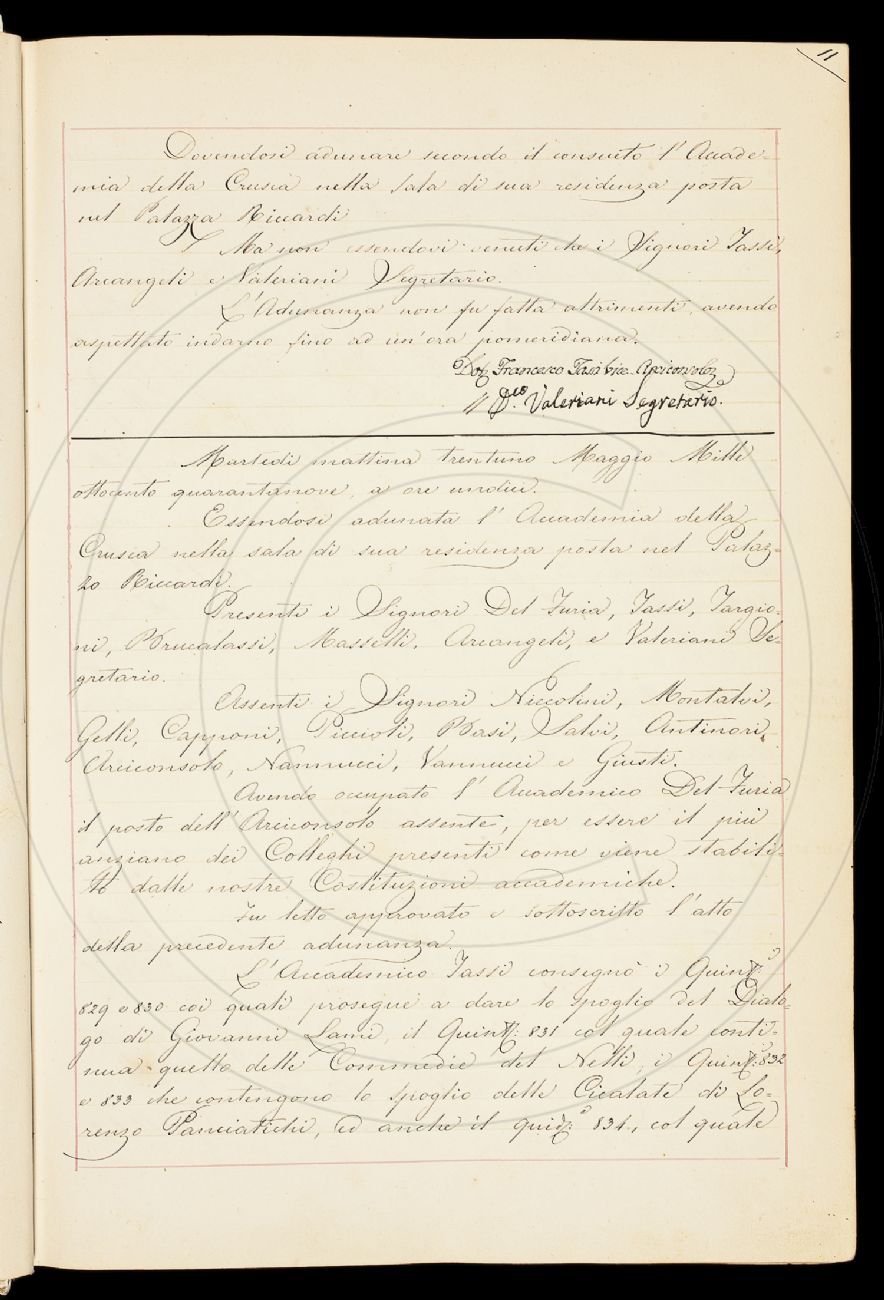 11
Dovendosi adunare secondo il consueto l'Accade-
mia della Crusca nella sala di sua residenza posta
nel Palazzo Riccardi
Ma non essendovi venuti che i Signori Tassi,
Arcangeli e Valeriani Segretario.
L'Adunanza non fu fatta altrimenti, avendo
aspettato indarno fino ad un'ora pomeridiana.
Dot. Francesco Tassi Vice-Arciconsolo
Valeriani Segretario.
Martedì mattina trentuno Maggio Mille
ottocento quarantanove, a ore undici.
Essendosi adunata l'Accademia della
Crusca nella sala di sua residenza posta nel Palaz-
zo Riccardi.
Presenti i Signori Del-Furia, Tassi, Targio-
ni, Brucalassi, Masselli, Arcangeli, e Valeriani Se-
gretario.
Assenti i Signori Niccolini, Montalvi,
Gelli, Capponi, Piccioli, Basi, Salvi, Antinori
Arciconsolo, Nannucci, Vannucci e Giusti.
Avendo occupato l'Accademico Del-Furia
il posto dell'Arciconsolo assente, per essere il più
anziano dei Colleghi presenti come viene stabili-
to dalle nostre Costituzioni accademiche.
Fu letto approvato e sottoscritto l'atto
della precedente adunanza.
L'Accademico Tassi consegnò i Quint:
829 e 830 coi quali prosegue a dare lo spoglio del Dialo-
go di Giovanni Lami, il Quint: 831 col quale conti-
nua quello delle Commedie del Nelli, i Quint: 832
e 833 che contengono lo spoglio delle Cicalate di Lo-
renzo Panciatichi, ed anche il quint: 834, col quale